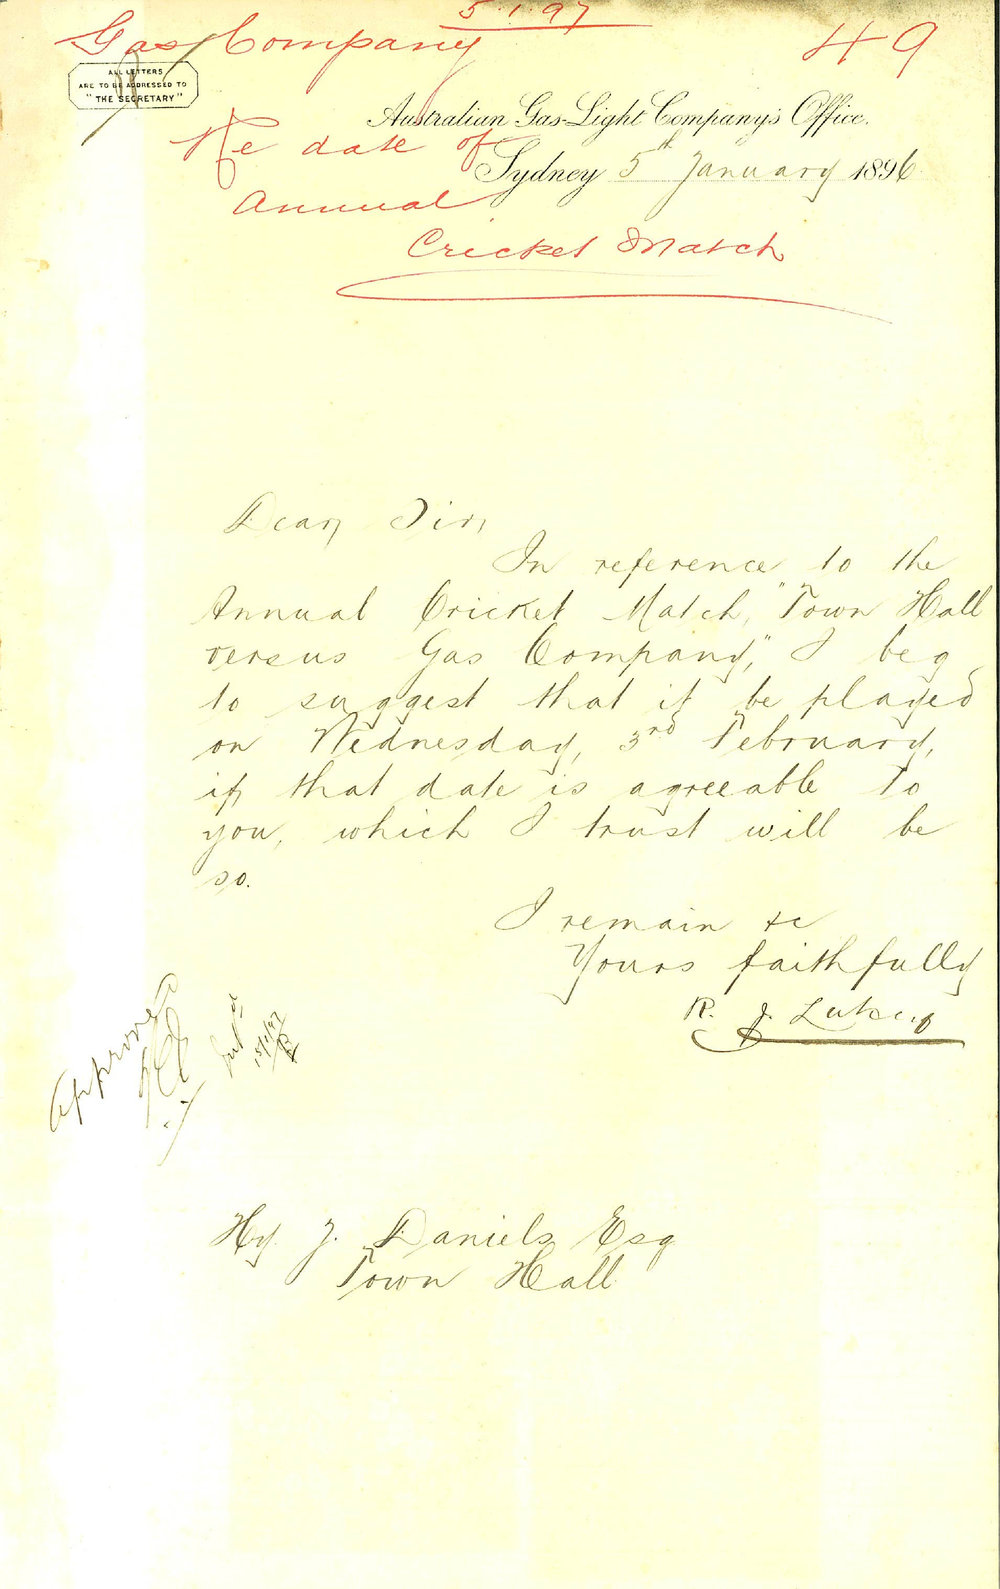 5.1.97
Gas Company
49
ALL LETTERS
ARE TO BE ADDRESSED TO
"THE SECRETARY"
Australian Gas-Light Company's Office.
Re date of
Sydney 5th January 1896
Annual
Cricket Match
Dear Sir,
In reference to the
Annual Cricket Match, "Town Hall
versus Gas Company," I beg
to suggest that it be played
on Wednesday, 3rd February,
if that date is agreeable to
you, which I trust will be
so.
I remain &c
Yours faithfully
R. J.
Approved
15/1/97
Hy. J. Daniels Esq
Town Hall